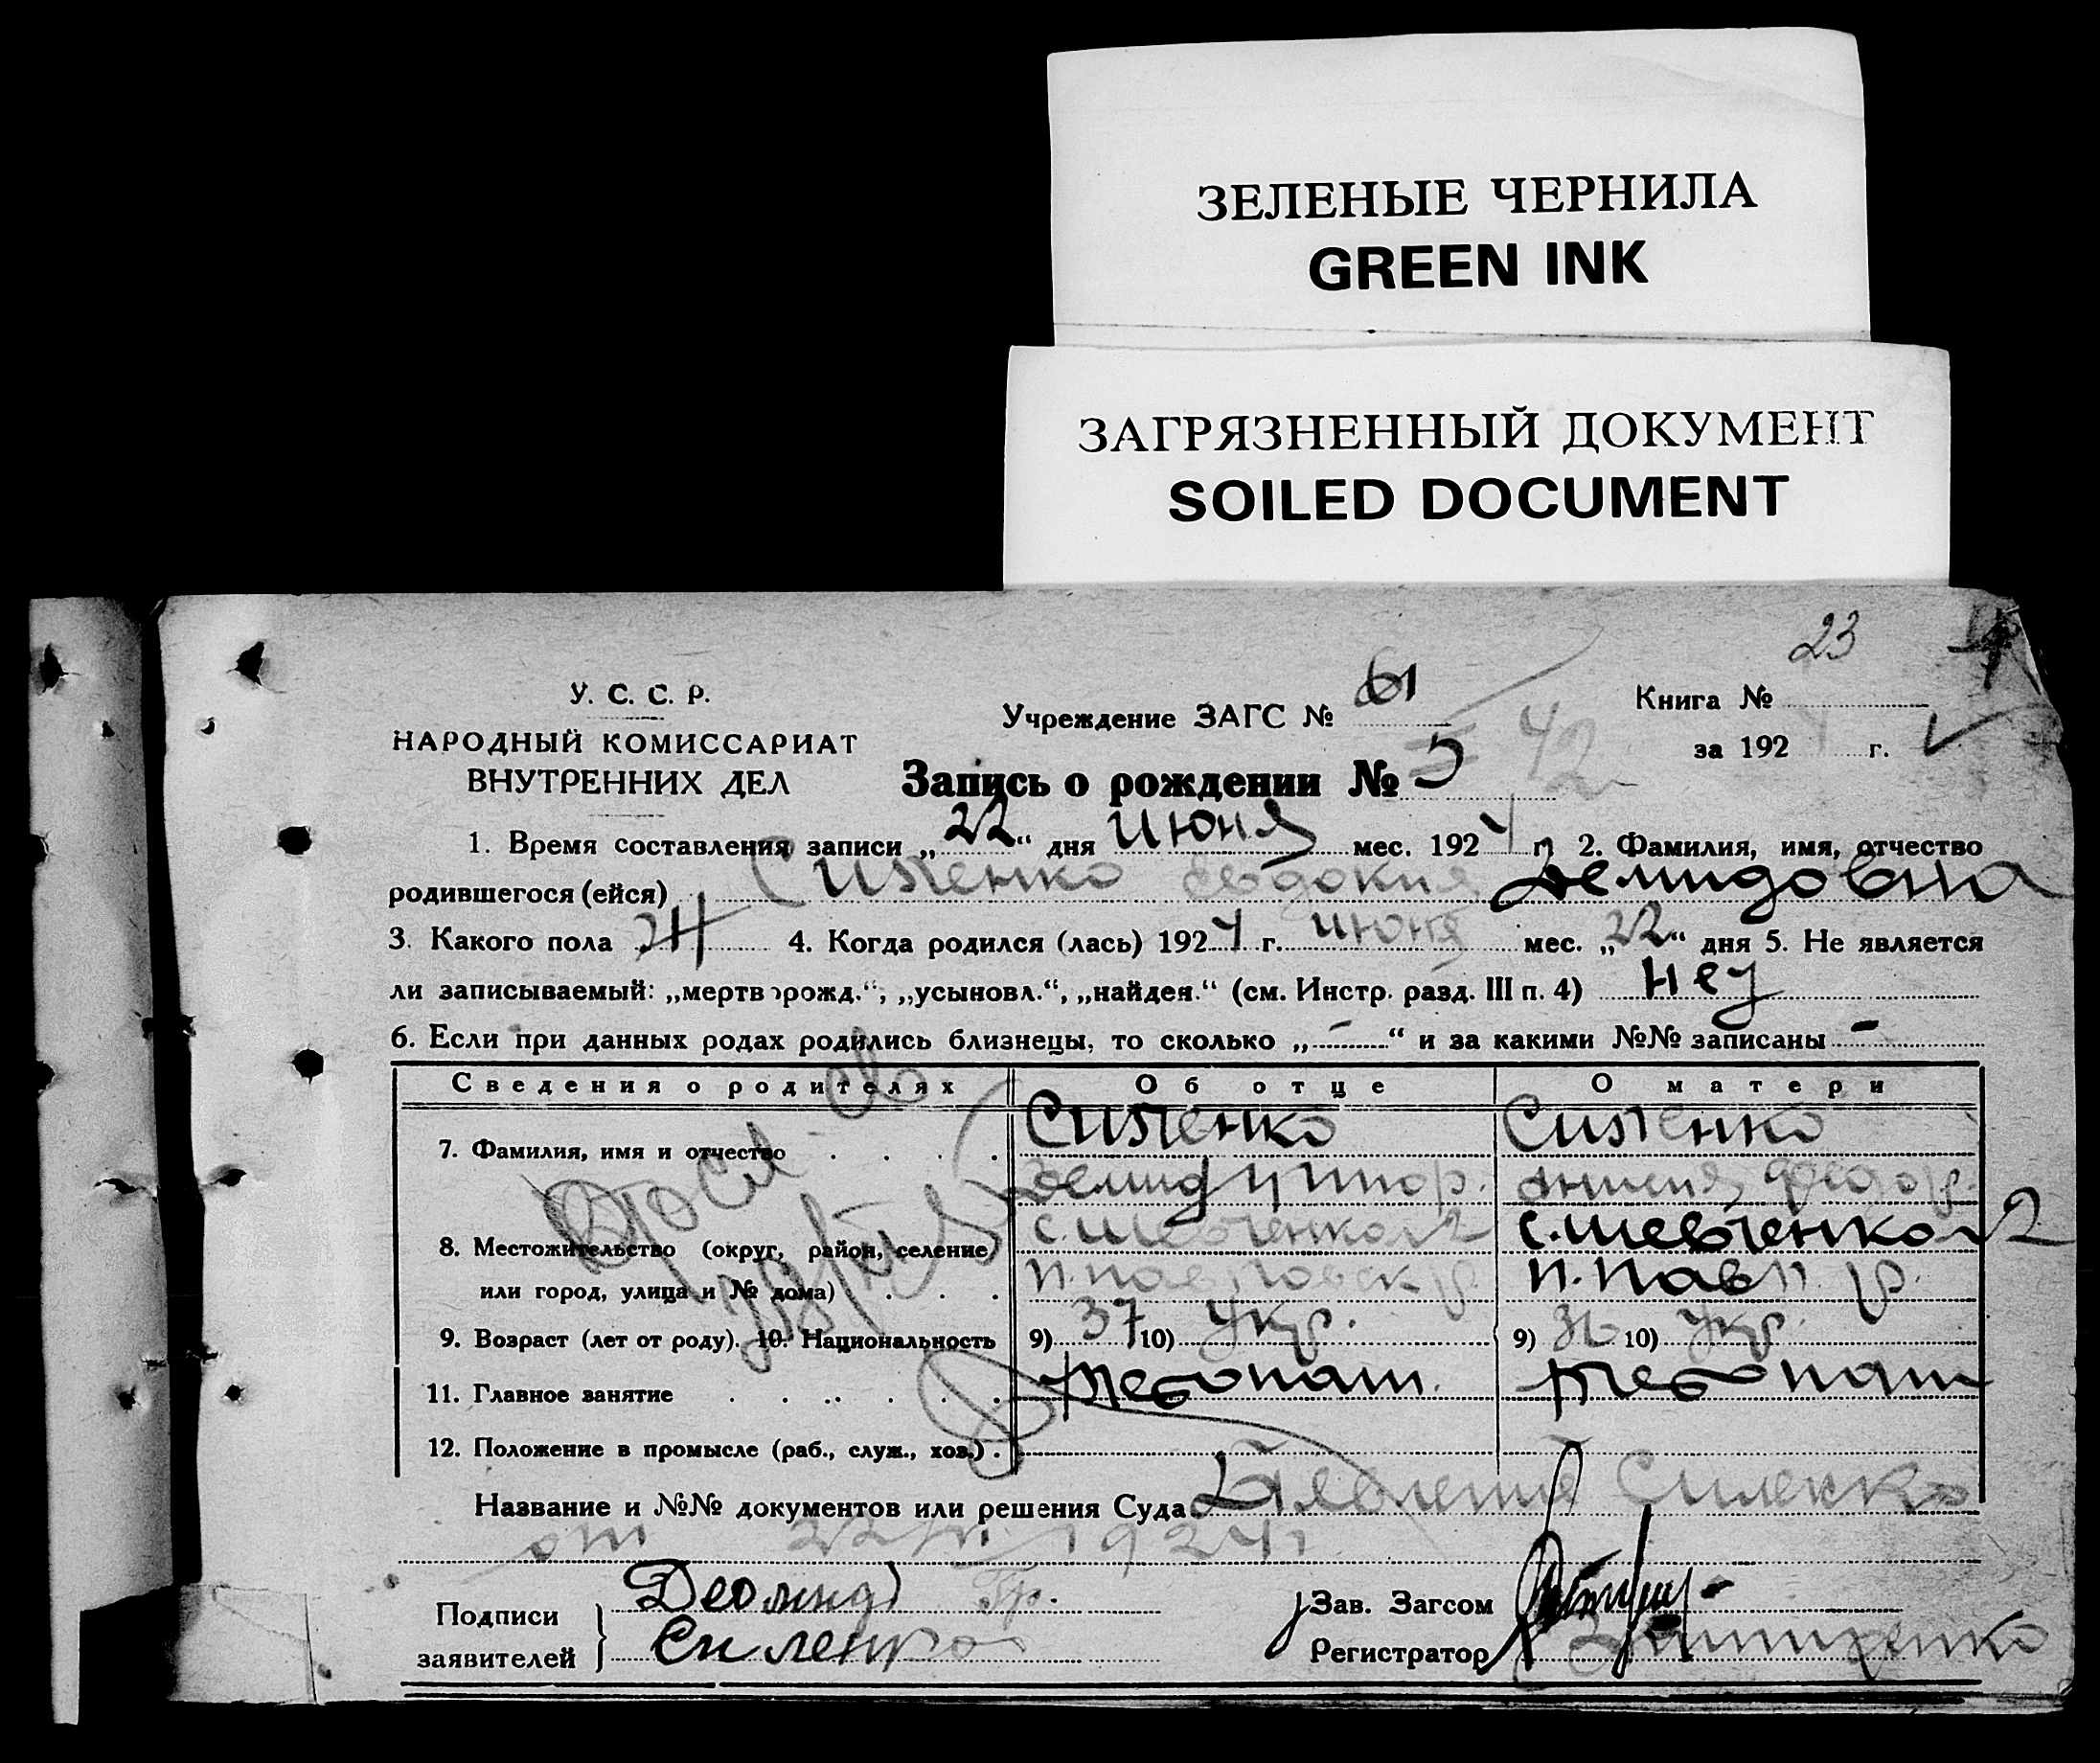 ЗЕЛЕНЫЕ ЧЕРНИЛА
GREEN INK
ЗАГРЯЗНЕННЫЙ ДОКУМЕНТ
SOILED DOCUMENT
23
У. С. С. Р.
НАРОДНЫЙ КОМИССАРИАТ
ВНУТРЕННИХ ДЕЛ
Учреждение ЗАГС № 61
Книга №
за 1924 г.
Запись о рождении № 5 42
1. Время составления записи „22“ дня июня мес. 1924 г. 2. Фамилия, имя, отчество
родившегося (ейся) Силенко Евдокия Демидовна
3. Какого пола Ж 4. Когда родился (лась) 1924 г. июня мес. „22“ дня 5. Не является
ли записываемый: „мертворожд.“, „усыновл.“, „найден.“ (см. Инстр. разд. III п. 4) нет
6. Если при данных родах родились близнецы, то сколько „-“ и за какими №№ записаны -
Сведения о родителях Об отце О матери
7. Фамилия, имя и отчество Силенко Силенко
Демид Федор.
8. Местожительство (округ, район, селение, с. Шевченко 2 с. Шевченко 2
или город, улица и № дома) П. Павловск р П. Павл. р.
9. Возраст (лет от роду). 10. Национальность 9) 37 10) Укр. 9) 36 10) Укр.
11. Главное занятие Хлебопаш. Хлебопаш
12. Положение в промысле (раб., служ., хоз.)
Название и №№ документов или решения Суда Заявление Силенко
от 22/VI 1924 г
Подписи заявителей Деомид Гр.
Силенко
Зав. Загсом
Регистратор